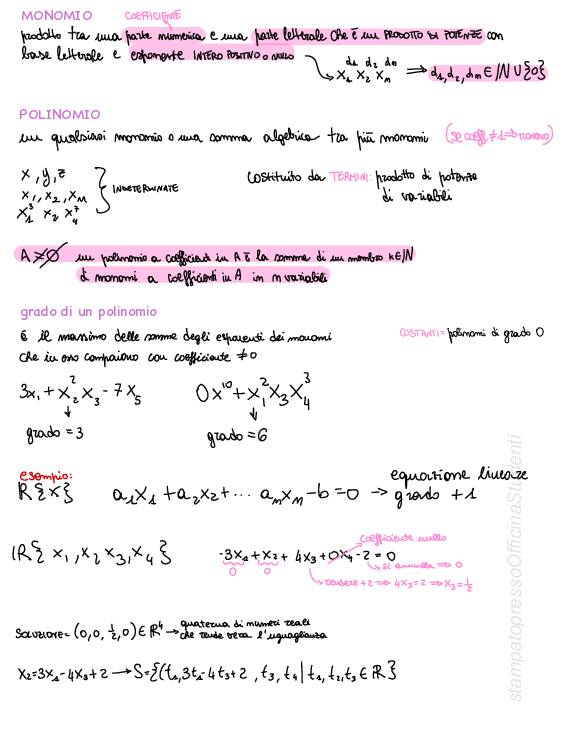 MONOMIO
COEFFICIENTE
prodotto tra una parte numerica e una parte letterale che è un PRODOTTO DI POTENZE con
base letterale e esponente INTERO POSITIVO o NULLO
x₁^d₁ x₂^d₂ xₙ^dₙ ⇒ d₁,d₂,dₙ ∈ ℕ ∪ {0}
POLINOMIO
un qualsiasi monomio o una somma algebrica tra più monomi (se coeff. ≠ 1 ⇒
x, y, z
x₁, x₂, xₙ
x₁³ x₂ x₄⁷
INDETERMINATE
costituito da TERMINI: prodotto di potenze
di variabili
A ≠ ∅ un polinomio a coefficienti in A è la somma di un numero k∈ℕ
di monomi a coefficienti in A in n variabili
grado di un polinomio
è il massimo delle somme degli esponenti dei monomi
che in esso compaiono con coefficiente ≠0
COSTANTI = polinomi di grado 0
3x₁ + x₂²x₃ - 7x₅
grado = 3
0x¹⁰ + x₁²x₃x₄³
grado = 6
esempio:
ℝ{x} a₁x₁ + a₂x₂ + ... aₙxₙ - b = 0 → equazione lineare
grado +1
ℝ{x₁, x₂ x₃, x₄} -3x₁ + x₂ + 4x₃ + 0x₄ - 2 = 0
coefficiente nullo
0 0
si annulla ⇒ 0
rendere +2 ⇒ 4x₃ = 2 ⇒ x₃ = ½
SOLUZIONE = (0, 0, ½, 0) ∈ ℝ⁴ → quaterna di numeri reali
che rende vera l'uguaglianza
x₂ = 3x₁ - 4x₃ + 2 → S = {(t₁, 3t₁ - 4t₃ + 2, t₃, t₄ | t₁, t₂, t₃ ∈ ℝ}
stampatopressoOfficinaStudenti